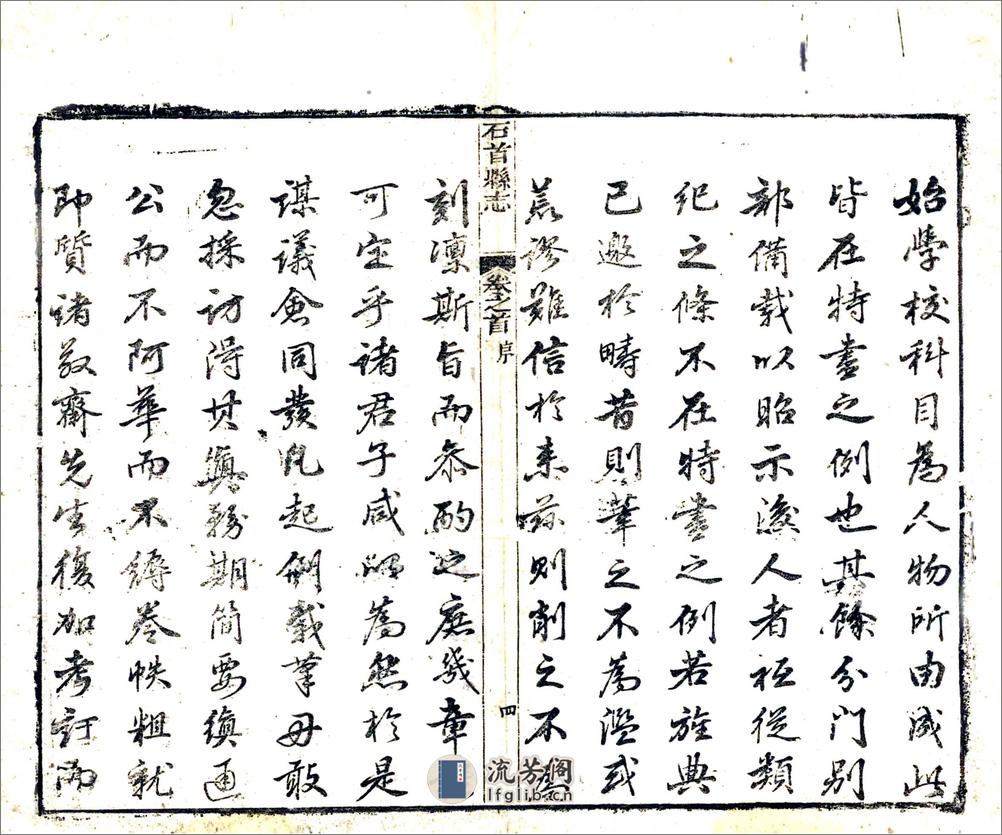 始學校科目為人物所由成此
皆在特書之例也其餘分門別
部備載以昭示後人者秪從類
紀之條不在特書之例若旌典
已邀於疇昔則筆之不為濫或
荒謬難信於来茲則削之不
石首縣志 卷之首 序 四
刻凜斯旨而叅酌之庶幾章
可定乎諸君子咸以為然於是
謀議僉同發凡起例載筆毋敢
忽採訪得其真務期簡要通
公而不阿華而不縟卷帙粗就
即質諸敬齋先生復加考訂而
流芳阁
lfglib.cn